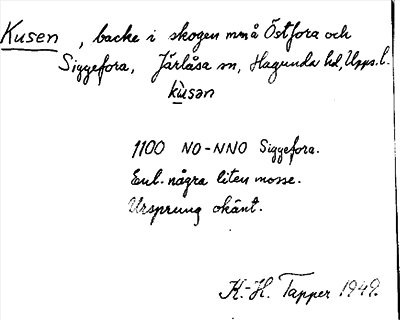 Kusen, backe i skogen mnå Östfora och
Siggefora, Järlåsa sn, Hagunda hd, Upps. l.
kùsən
1100 NO-NNO Siggefora.
Enl. några liten mosse.
Ursprung okänt.
K.-H. Tapper 1949.